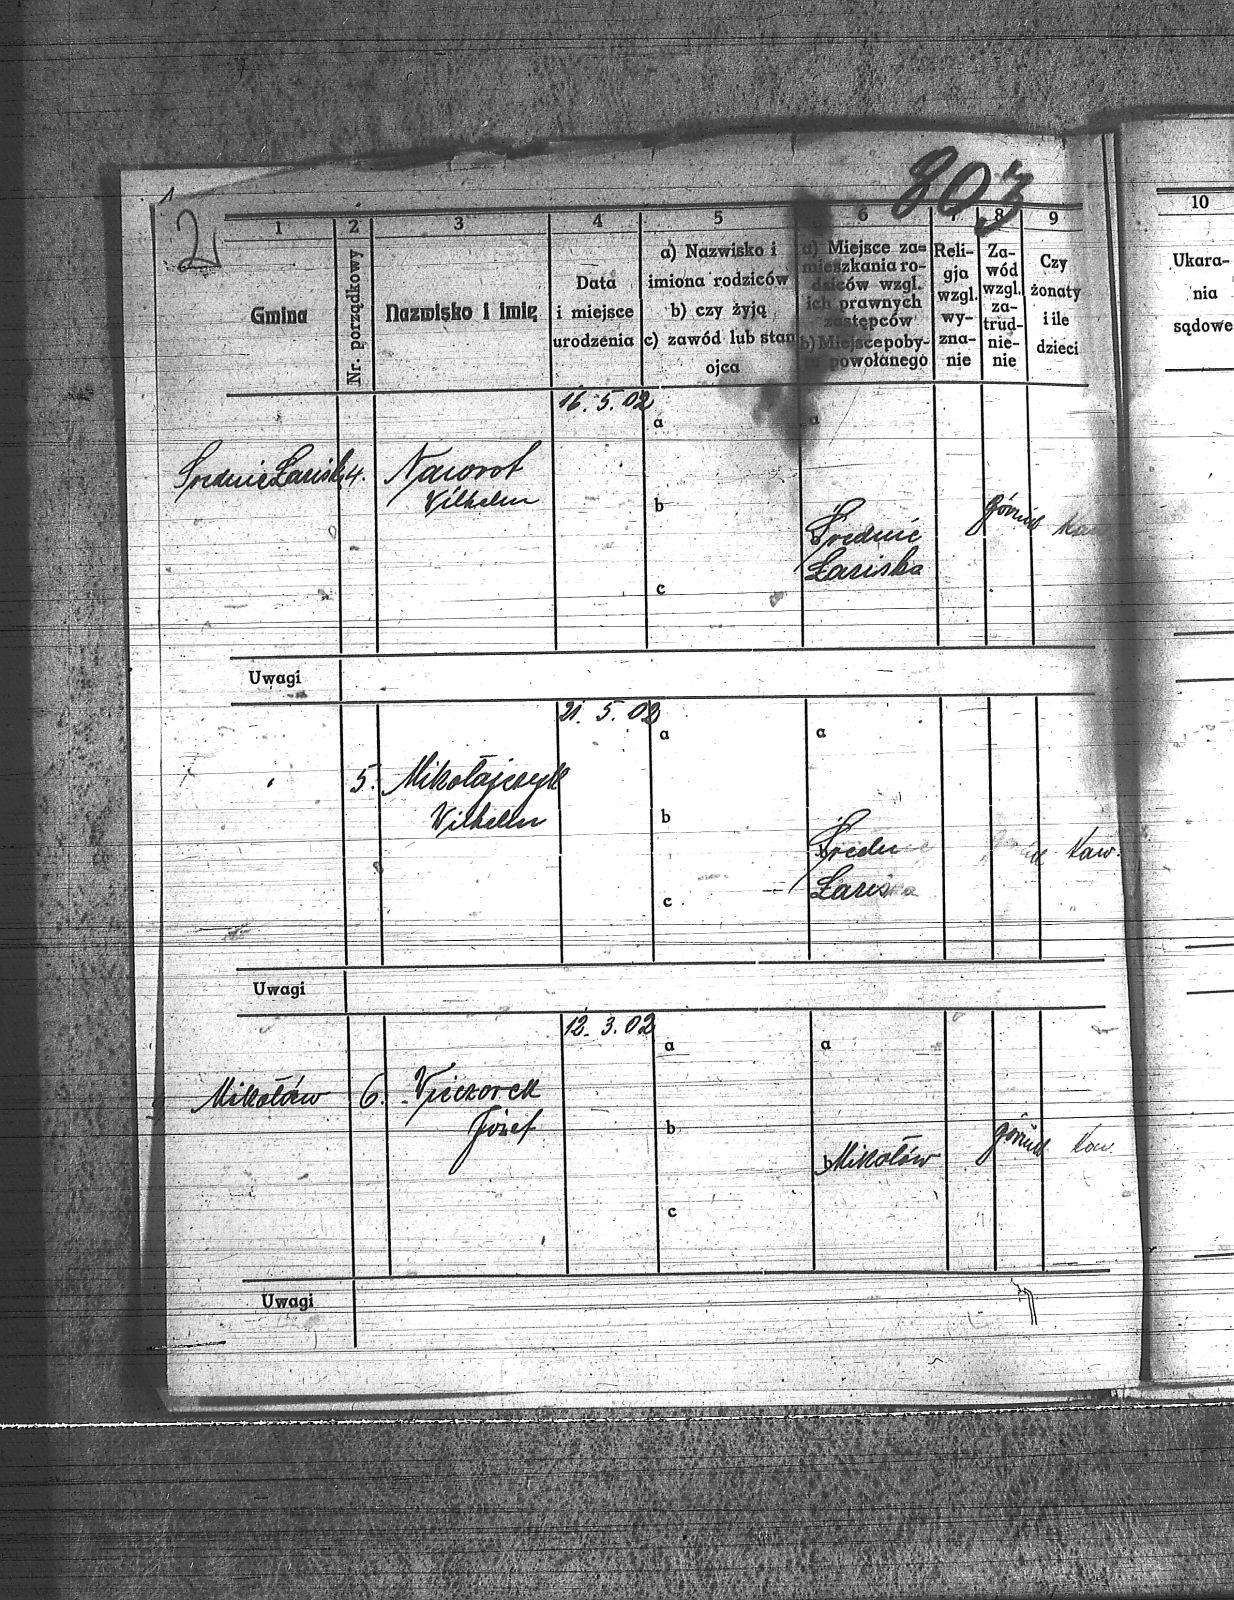 803
2
1
2
3
4
5
6
7
8
9
10
Gmina
Nr. porządkowy
Nazwisko i imię
Data
i miejsce
urodzenia
a) Nazwisko i
imiona rodziców
b) czy żyją
c) zawód lub stan
ojca
a) Miejsce za=
mieszkania ro-
dziców wzgl.
ich prawnych
zastępców
b) Miejsce poby-
tu powołanego
Reli-
gja
wzgl.
wy-
zna-
nie
Za-
wód
wzgl.
za-
trud-
nie-
nie
Czy
żonaty
i ile
dzieci
Ukara-
nia
sądowe
16. 5. 02
a
a
Średnie Łaziska
4.
Nawrot
Wilhelm
b
Średnie
Łaziska
górnik
kaw
c
Uwagi
21. 5. 02
a
a
5.
Mikołajczyk
Wilhelm
b
Średn
Łazis
kaw.
c
Uwagi
12. 3. 02
a
a
Mikołów
6.
Wieczorek
Józef
b
b
Mikołów
górnik
kaw.
c
Uwagi